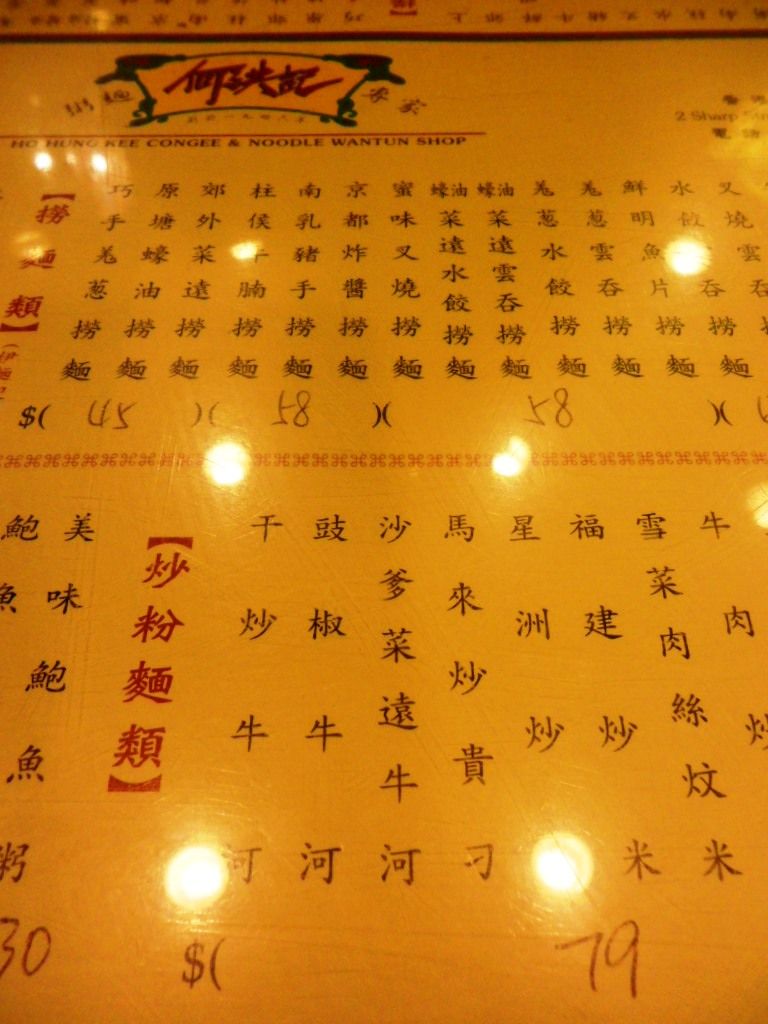 何洪記
粥麵
專家
創於一九四六年
HO HUNG KEE CONGEE & NOODLE WANTUN SHOP
2 Sharp Str
電話
【撈麵類】
巧手羌葱撈麵
原塘蠔油撈麵
郊外菜遠撈麵
柱侯牛腩撈麵
南乳豬手撈麵
京都炸醬撈麵
蜜味叉燒撈麵
蠔油菜遠水餃撈麵
蠔油菜遠雲吞撈麵
羌葱水餃撈麵
羌葱雲吞撈麵
鮮明魚片撈麵
水餃吞撈麵
叉燒雲吞
$( 45 )( 58 )( 58 )(
鮑魚
美味鮑魚粥
30
【炒粉麵類】
干炒牛河
豉椒牛河
沙爹菜遠牛河
馬來炒貴刁
星洲炒
福建炒米
雪菜肉絲炆米
牛肉炒
$( 79